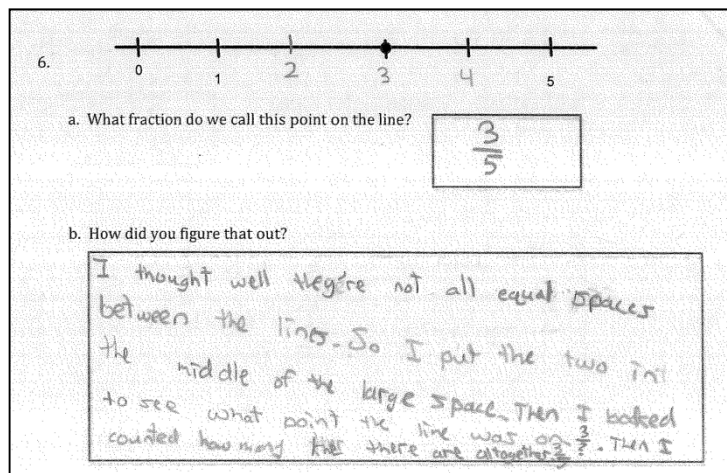 6.
0 1 2 3 4 5
a. What fraction do we call this point on the line?
3/5
b. How did you figure that out?
I thought well they're not all equal spaces
between the lines. So I put the two in
the middle of the large space. Then I looked
to see what point the line was on 3/?. Then I
counted how many there are altogether 3/5